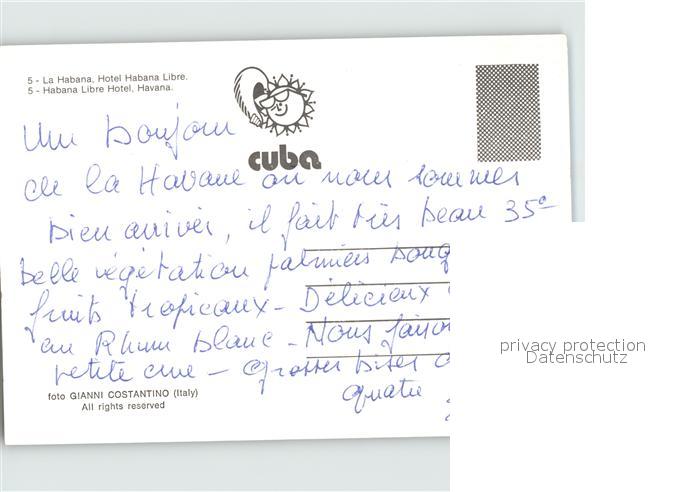 5 - La Habana, Hotel Habana Libre.
5 - Habana Libre Hotel, Havana.
cuba
Un Bonjour
de la Havane où nous sommes
bien arrivés, il fait très beau 35°
belle végétation palmiers
fruits tropicaux - Délicieux
au Rhum blanc - Nous
petite cure - Grosses bises
quatre
foto GIANNI COSTANTINO (Italy)
All rights reserved
privacy protection
Datenschutz